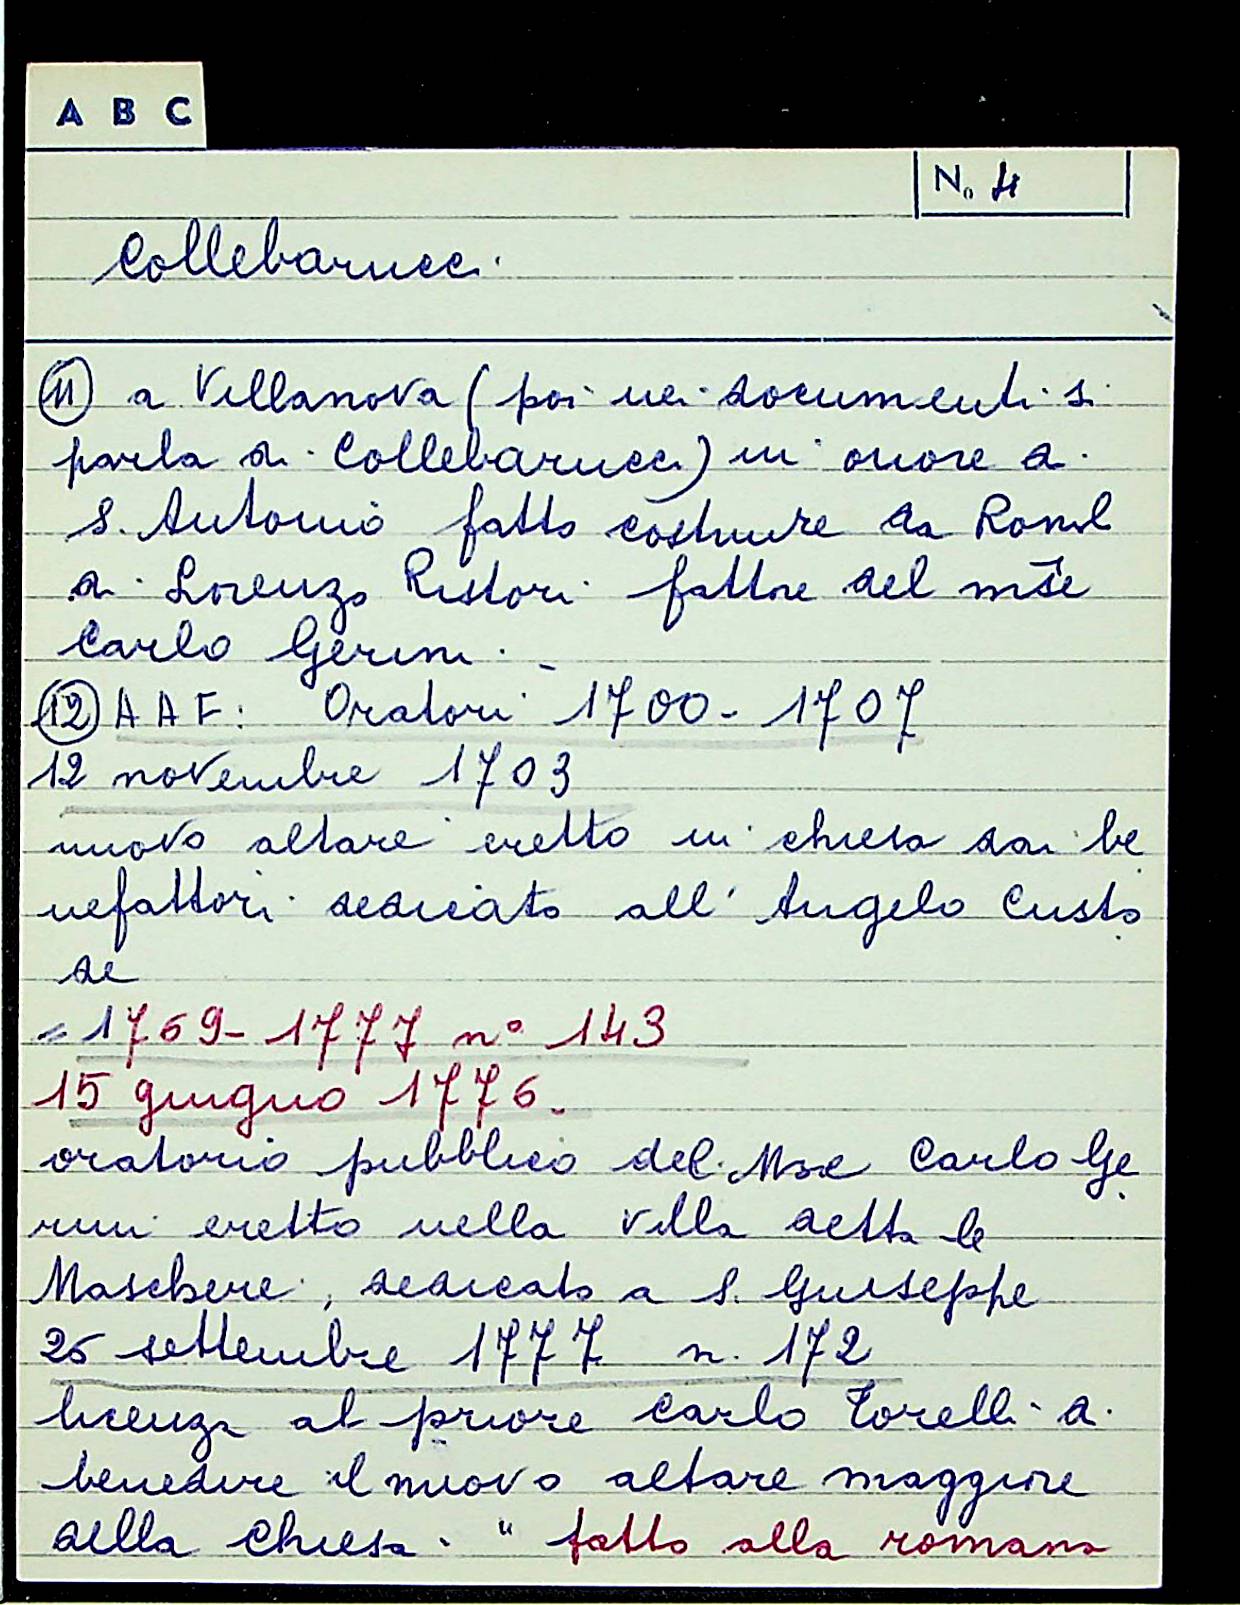 A B C
No 4
Collebarucci.
(11) a Villanova (poi nei documenti si
parla di Collebarucci) in onore di
S. Antonio fatto costruire da Romol
di Lorenzo Ristori fattore del mse
Carlo Gerini. -
(12) A A F: Oratori 1700 - 1707
12 novembre 1703
nuovo altare eretto in chiesa dai be
nefattori dedicato all' Angelo Custo
de
= 1769 - 1777 n° 143
15 giugno 1776.
oratorio pubblico del Mse Carlo Ge
rini eretto nella Villa detta le
Maschere, dedicato a S. Giuseppe
26 settembre 1777 n. 172
licenza al priore Carlo Torelli di
benedire il nuovo altare maggiore
della chiesa. " fatto alla romana